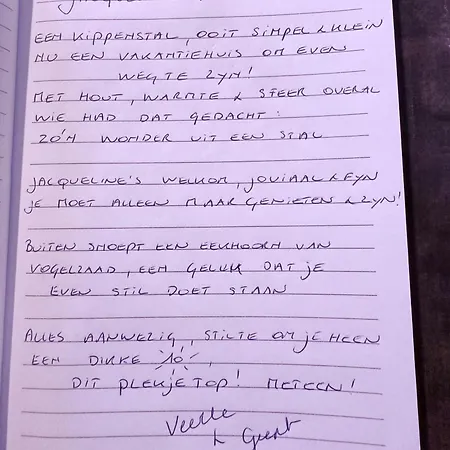 EEN KIPPENSTAL, OOIT SIMPEL & KLEIN
NU EEN VAKANTIEHUIS OM EVEN
WEG TE ZYN!
MET HOUT, WARMTE & SFEER OVERAL
WIE HAD DAT GEDACHT:
ZO'N WONDER UIT EEN STAL
JACQUELINE'S WELKOM, JOVIAAL & FYN
JE MOET ALLEEN MAAR GENIETEN & ZYN!
BUITEN SNOEPT EEN EEKHOORN VAN
VOGELZAAD, EEN GELUK DAT JE
EVEN STIL DOET STAAN
ALLES AANWEZIG, STILTE OM JE HEEN
EEN DIKKE 10,
DIT PLEKJE TOP! METEEN!
Veerle
& Geert